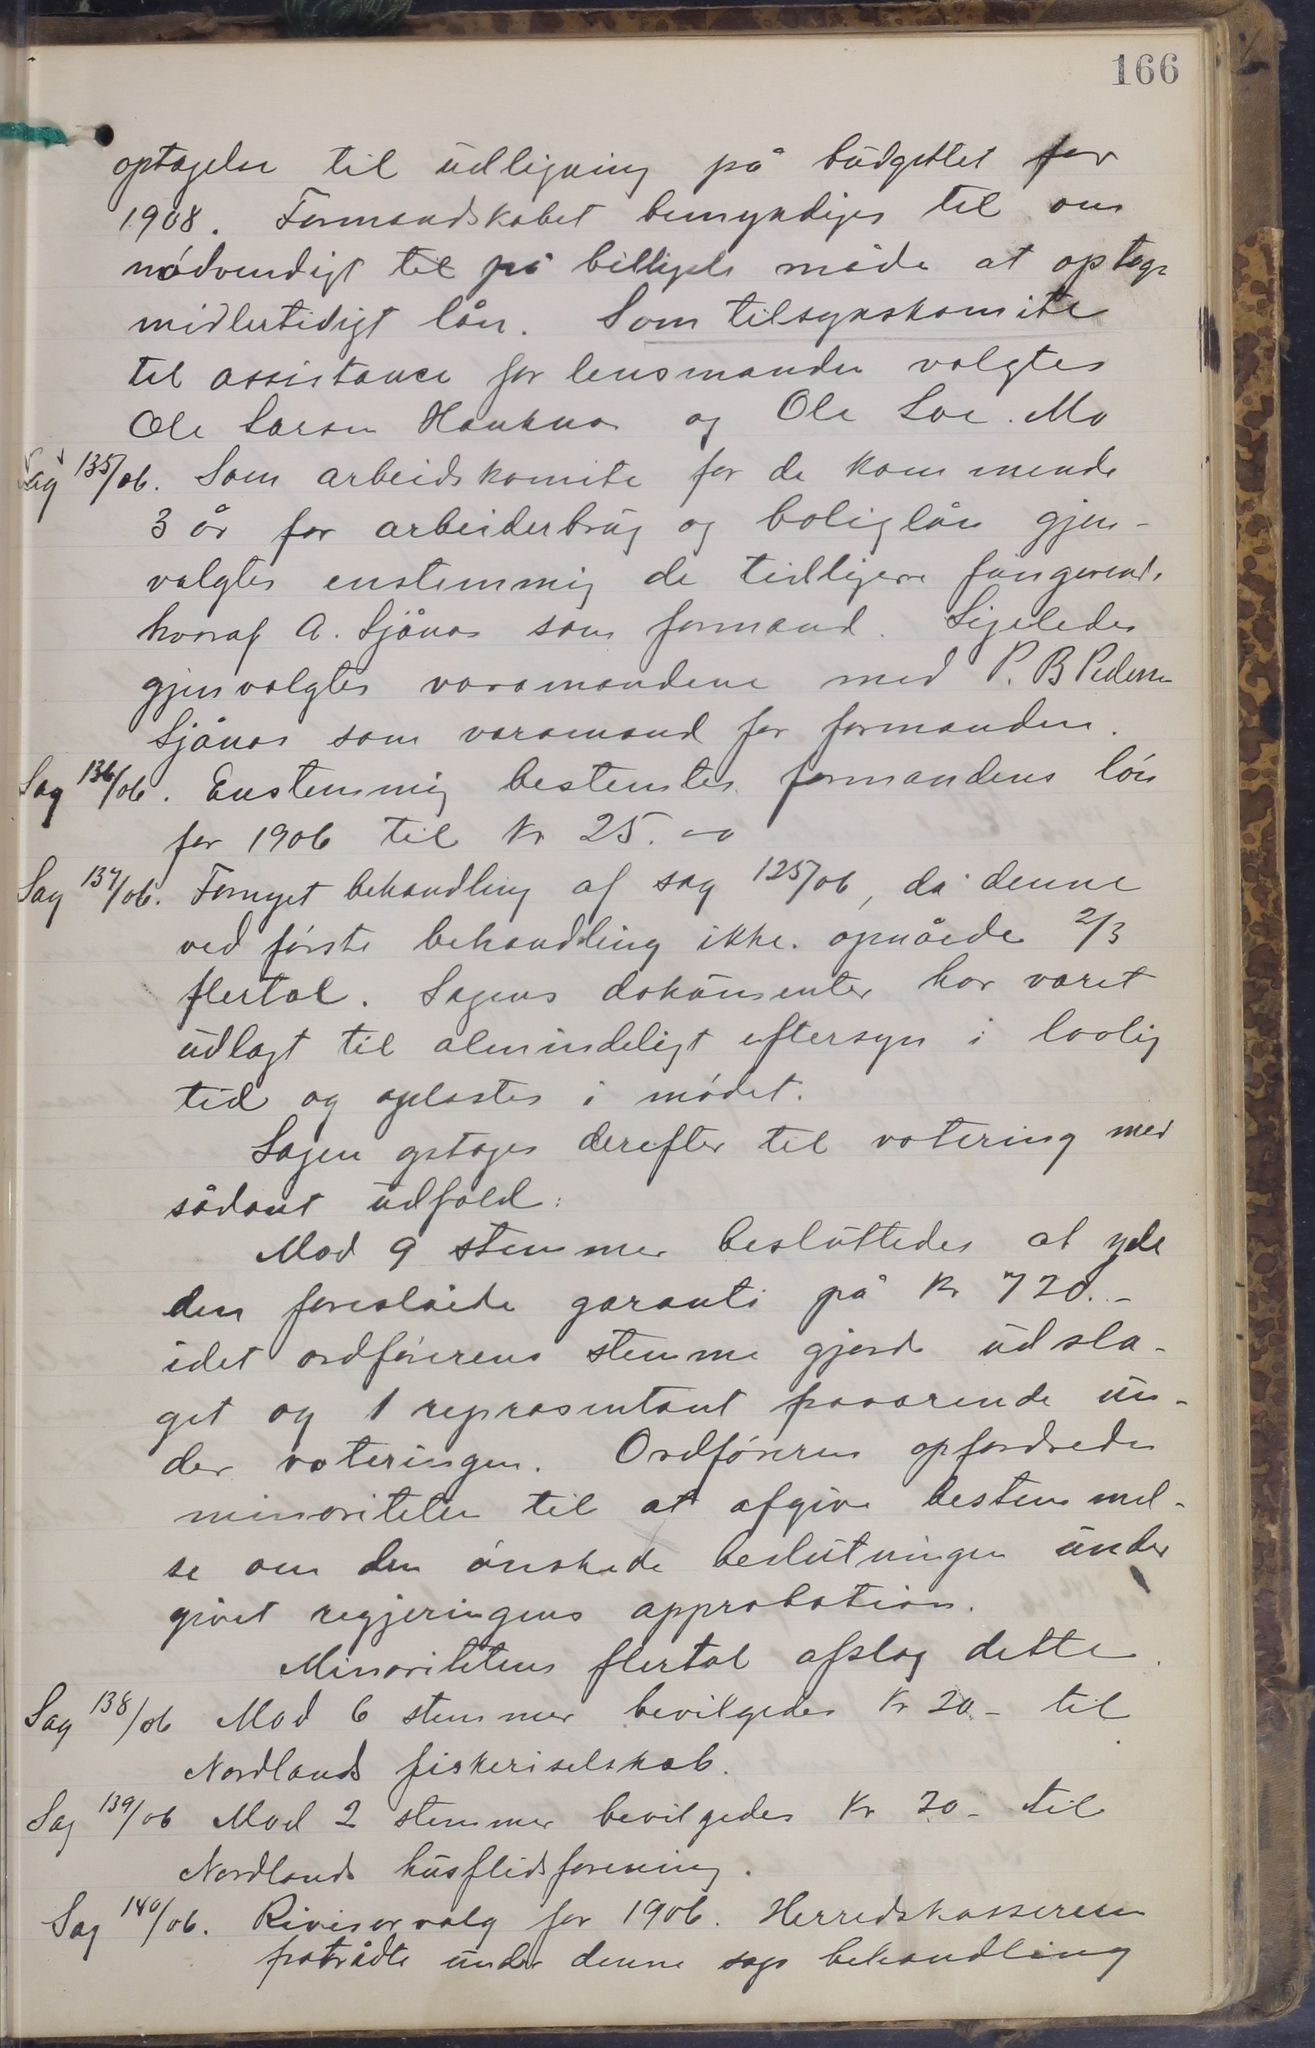 166
optagelse til udligning på budgettet for
1908. Formandskabet bemyndiges til om
nødvendigt til på billigste måde at optage
midlertidigt lån. Som tilsynskomite
til assistance for lensmanden valgtes
Ole Larsen Hauknes og Ole Soe. Mo
Sag 135/06. Som arbeidskomite for de kommende
3 år for arbeiderbrug og boliglån gjen-
valgtes enstemmig de tidligere fungerende
hvoraf A. Sjånes som formand. Ligeledes
gjenvalgtes varamændene med P. B Pedersen
Sjånes som varamand for formanden.
Sag 136/06. Enstemmig bestemtes formandens løn
for 1906 til Kr 25.00
Sag 137/06. Fornyet behandling af sag 125/06, da denne
ved første behandling ikke opnåede 2/3
flertal. Sagens dokumenter har været
udlagt til almindeligt eftersyn i lovlig
tid og oplæstes i mødet.
Sagen optoges derefter til votering med
sådant udfald:
Mod 9 stemmer besluttedes at yde
den foreslåede garanti på Kr 720.-
idet ordførerens stemme gjorde udsla-
get og 1 repræsentant fraværende un-
der voteringen. Ordføreren opfordrede
minoriteten til at afgive bestemmel-
se om den ønskede beslutningen under
givet regjeringens approbation.
Minoritetens flertal afslog dette.
Sag 138/06 Mod 6 stemmer bevilgedes Kr 20- til
Nordlands fiskeriselskab.
Sag 139/06 Mod 2 stemmer bevilgedes Kr 20- til
Nordlands husflidsforening.
Sag 140/06. Revisorvalg for 1906. Herredskassereren
fratrådte under denne sags behandling